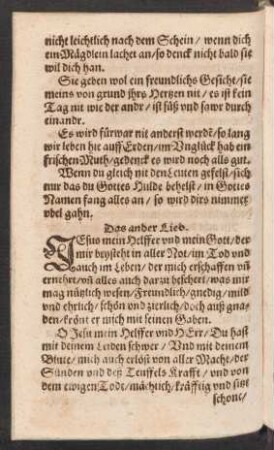 nicht leichtlich nach dem Schein / wenn dich
ein Mägdlein lachet an / so denck nicht bald sie
wil dich han.
Sie geben wol ein freundlichs Gesicht / sie
meins von grund jhrs Hertzen nit / es ist kein
Tag nit wie der andr / ist süß vnd sawr durch
einandr.
Es wird fürwar nit anderst werdẽ / so lang
wir leben hie auff Erden / im Vnglück hab ein
frischen Muth / gedenck es wird noch alls gut.
Wenn du gleich nit den Leuten gefelst / sich
nur das du Gottes Hulde behelst / in Gottes
Namen fang alles an / so wird dirs nimmer
vbel gahn.
Das ander Lied.
JEsus mein Helffer vnd mein Gott / der
mir beysteht in aller Not / im Tod vnd
auch im Leben / der mich erschaffen vñ
ernehrt / vñ alles auch darzu beschert / was mir
mag nützlich wesen / Freundlich / gnedig / mild
vnd ehrlich / schön vnd zierlich / doch auß gna-
den / krönt er mich mit seinen Gaben.
O Jesu mein Helffer vnd HErr / Du hast
mit deinem Leiden schwer / Vnd mit deinem
Blute / mich auch erlöst von aller Macht / der
Sünden vnd deß Teuffels Krafft / vnd von
dem ewigen Tode / mächtich / kräfftig vnd sitzt
schone /